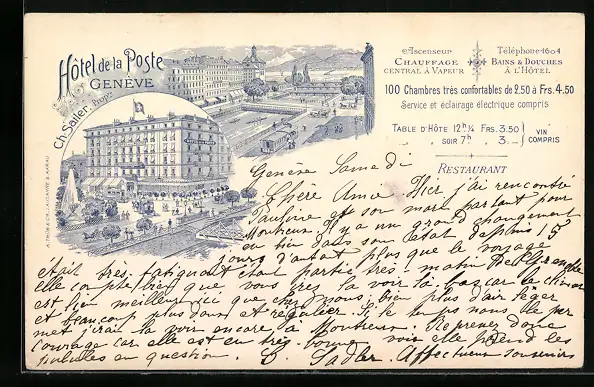 Hôtel de la Poste
GENÈVE
Ch. Sailer, Propr.
Ascenseur
CHAUFFAGE
CENTRAL À VAPEUR
Téléphone 1604
BAINS & DOUCHES
À L'HÔTEL
100 Chambres très confortables de 2.50 à Frs. 4.50
Service et éclairage électrique compris
TABLE D'HÔTE 12 h ¼ FRS. 3.50
SOIR 7 h 3.—
VIN
COMPRIS
RESTAURANT
Genève Samedi
Chère Amie Hier j'ai rencontré
et son mari partant pour
Montreux. Il y a un grand changement
en bien dans son état depuis 15
jours d'autant plus que le voyage
était très fatiguant étant partie très matin de
elle compte bien que vous irez la voir là-bas car le climat
est bien meilleur ici que chez nous, bien plus d'air léger
et beaucoup plus doux et régulier. Si le temps nous le per
met j'irai la voir encore à Montreux. Reprenez donc
courage car elle est en très bonne voie elle prend les
pilules en question. Affectueux souvenirs